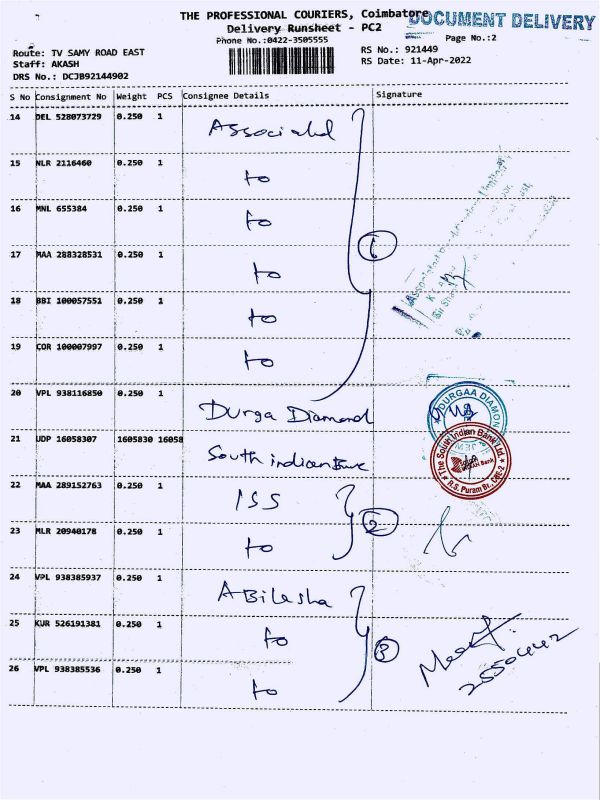 THE PROFESSIONAL COURIERS, Coimbatore
DOCUMENT DELIVERY
Delivery Runsheet - PC2
Phone No.:0422-3505555
Page No.:2
Route: TV SAMY ROAD EAST
RS No.: 921449
Staff: AKASH
RS Date: 11-Apr-2022
DRS No.: DCJB92144902
S No Consignment No Weight PCS Consignee Details Signature
14 DEL 528073729 0.250 1 Associated
15 NLR 2116460 0.250 1 to
16 MNL 655384 0.250 1 to
1
17 MAA 288328531 0.250 1 to
18 BBI 100057551 0.250 1 to
19 COR 100007997 0.250 1 to
20 VPL 938116850 0.250 1 Durga Diamond
DURGAA DIAMON
21 UDP 16058307 1605830 16058 South indian Bank
The South Indian Bank Ltd.
R.S. Puram Br., CBE-2
22 MAA 289152763 0.250 1 ISS
2
23 MLR 20940178 0.250 1 to
24 VPL 938385937 0.250 1 ABilasha
25 KUR 526191381 0.250 1 to
3
26 VPL 938385536 0.250 1 to